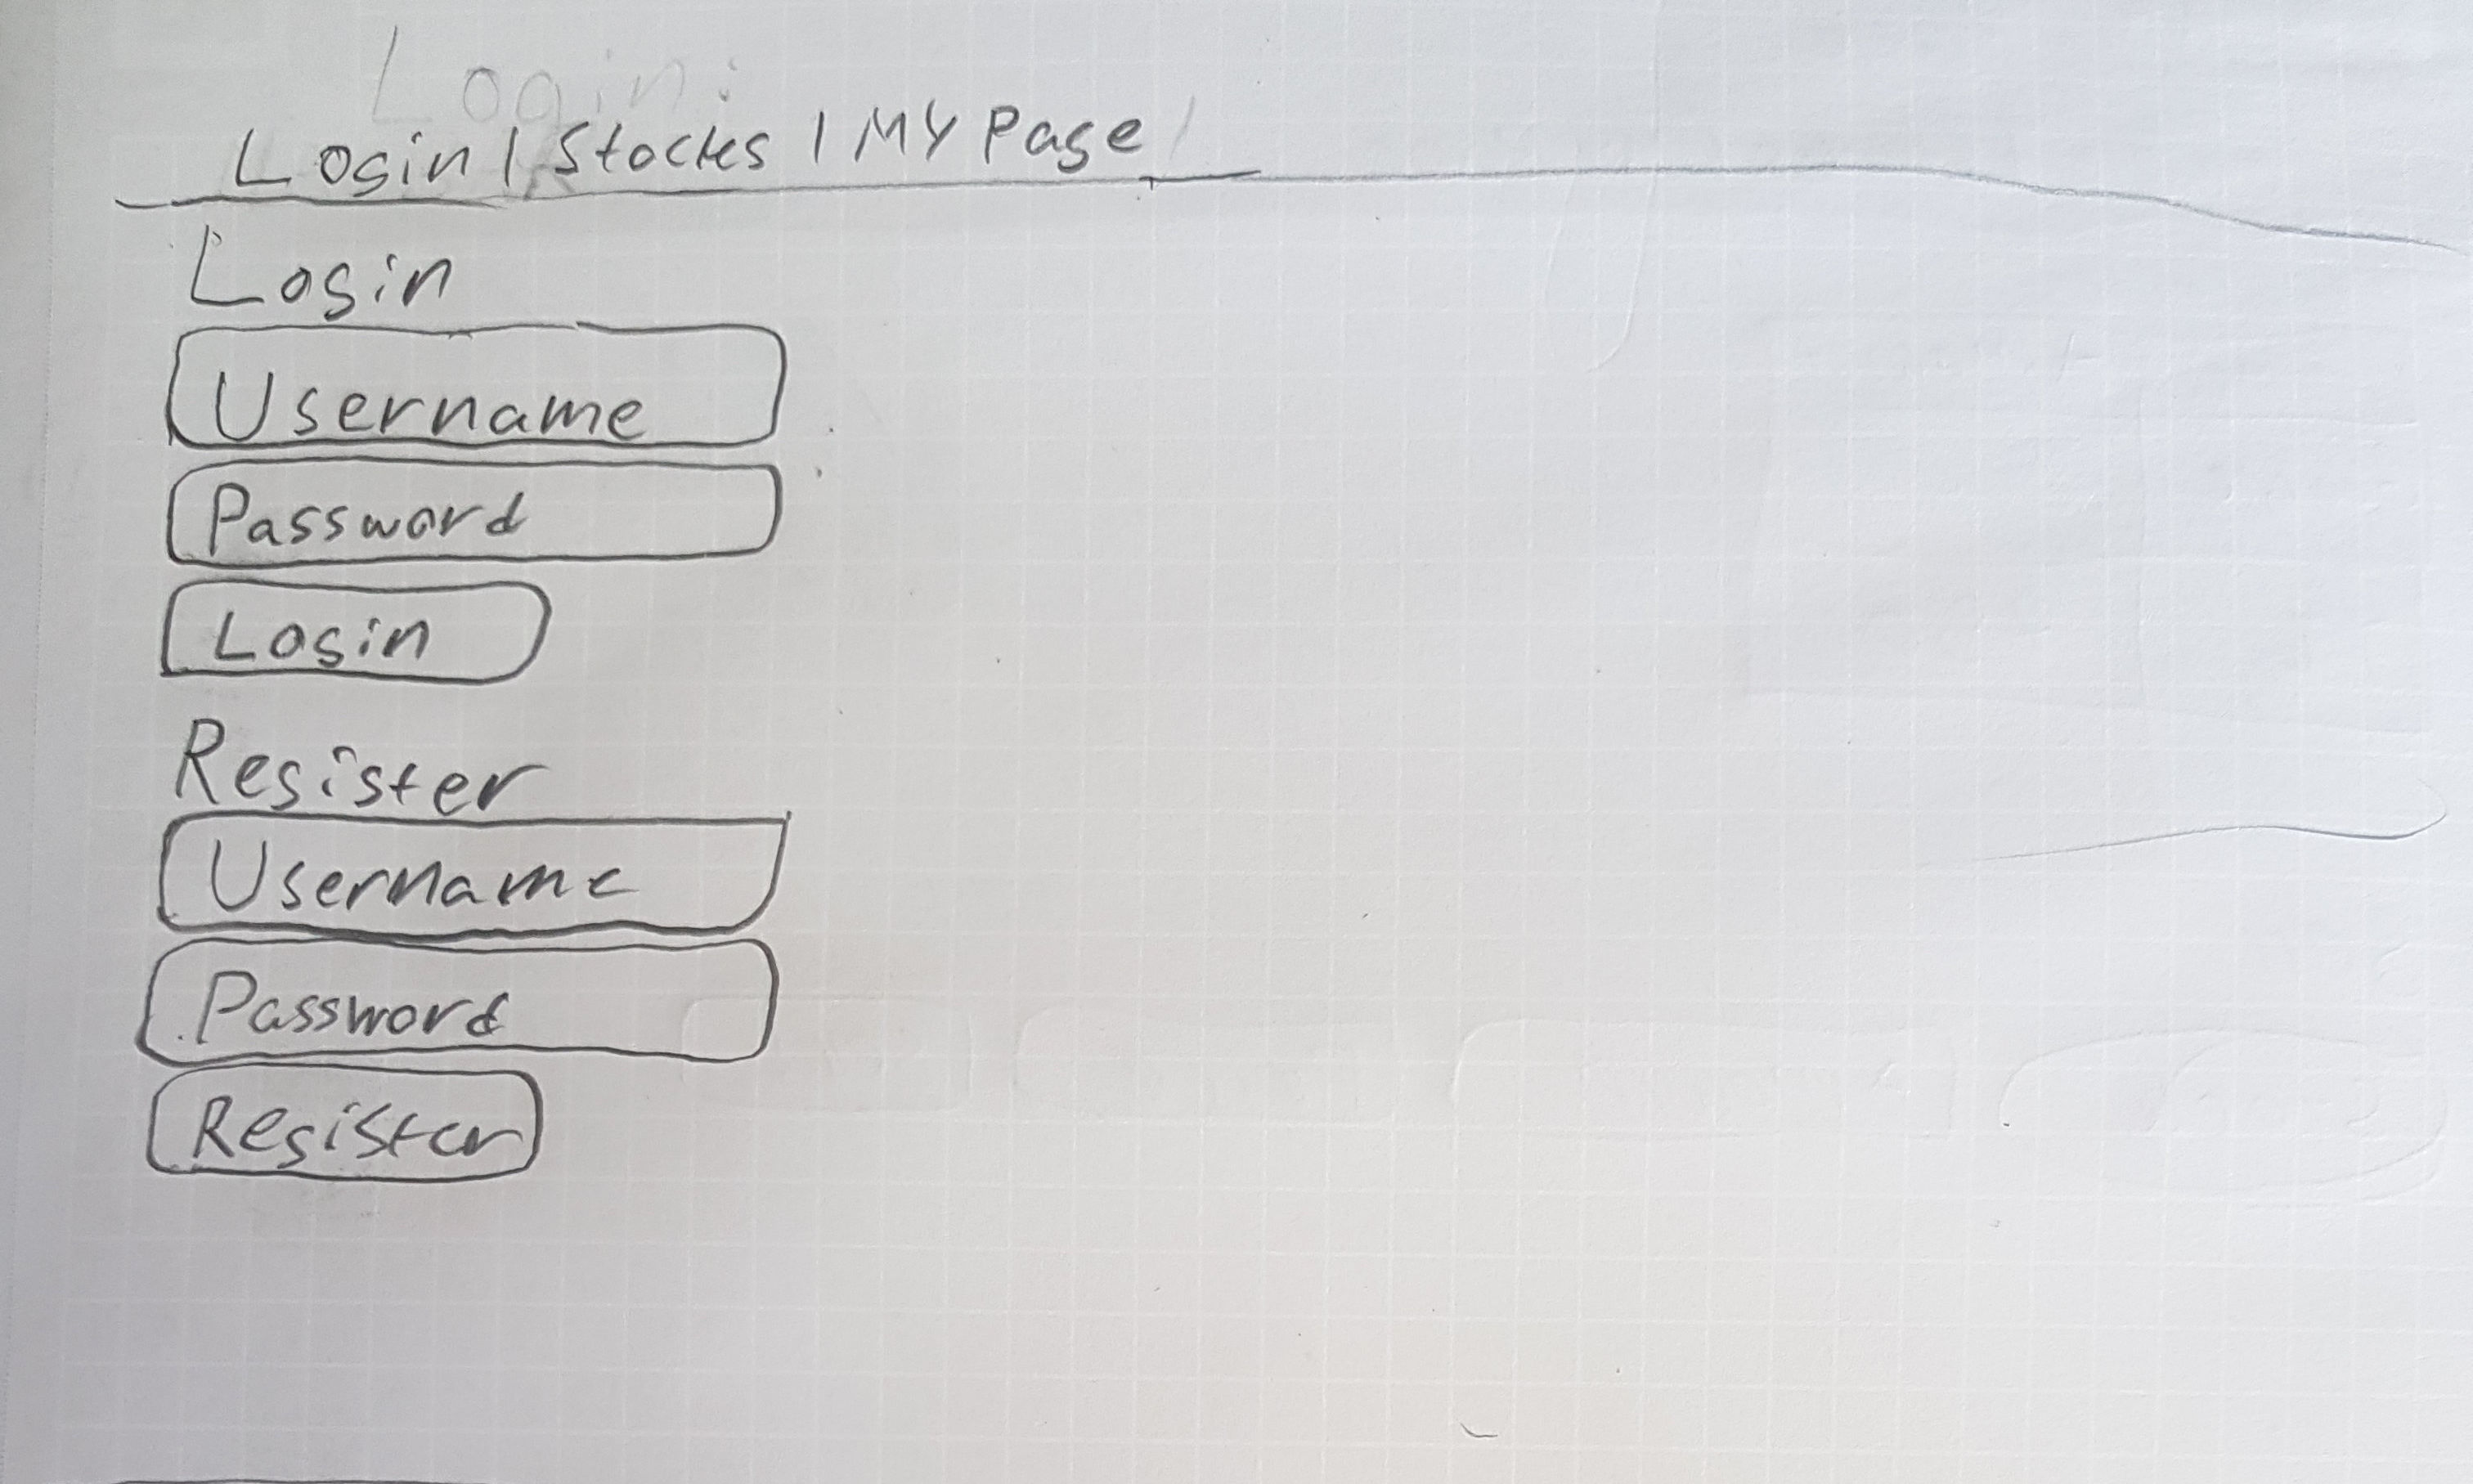 Login:
Login | Stocks | MY Page
Login
Username
Password
Login
Register
Username
Password
Register